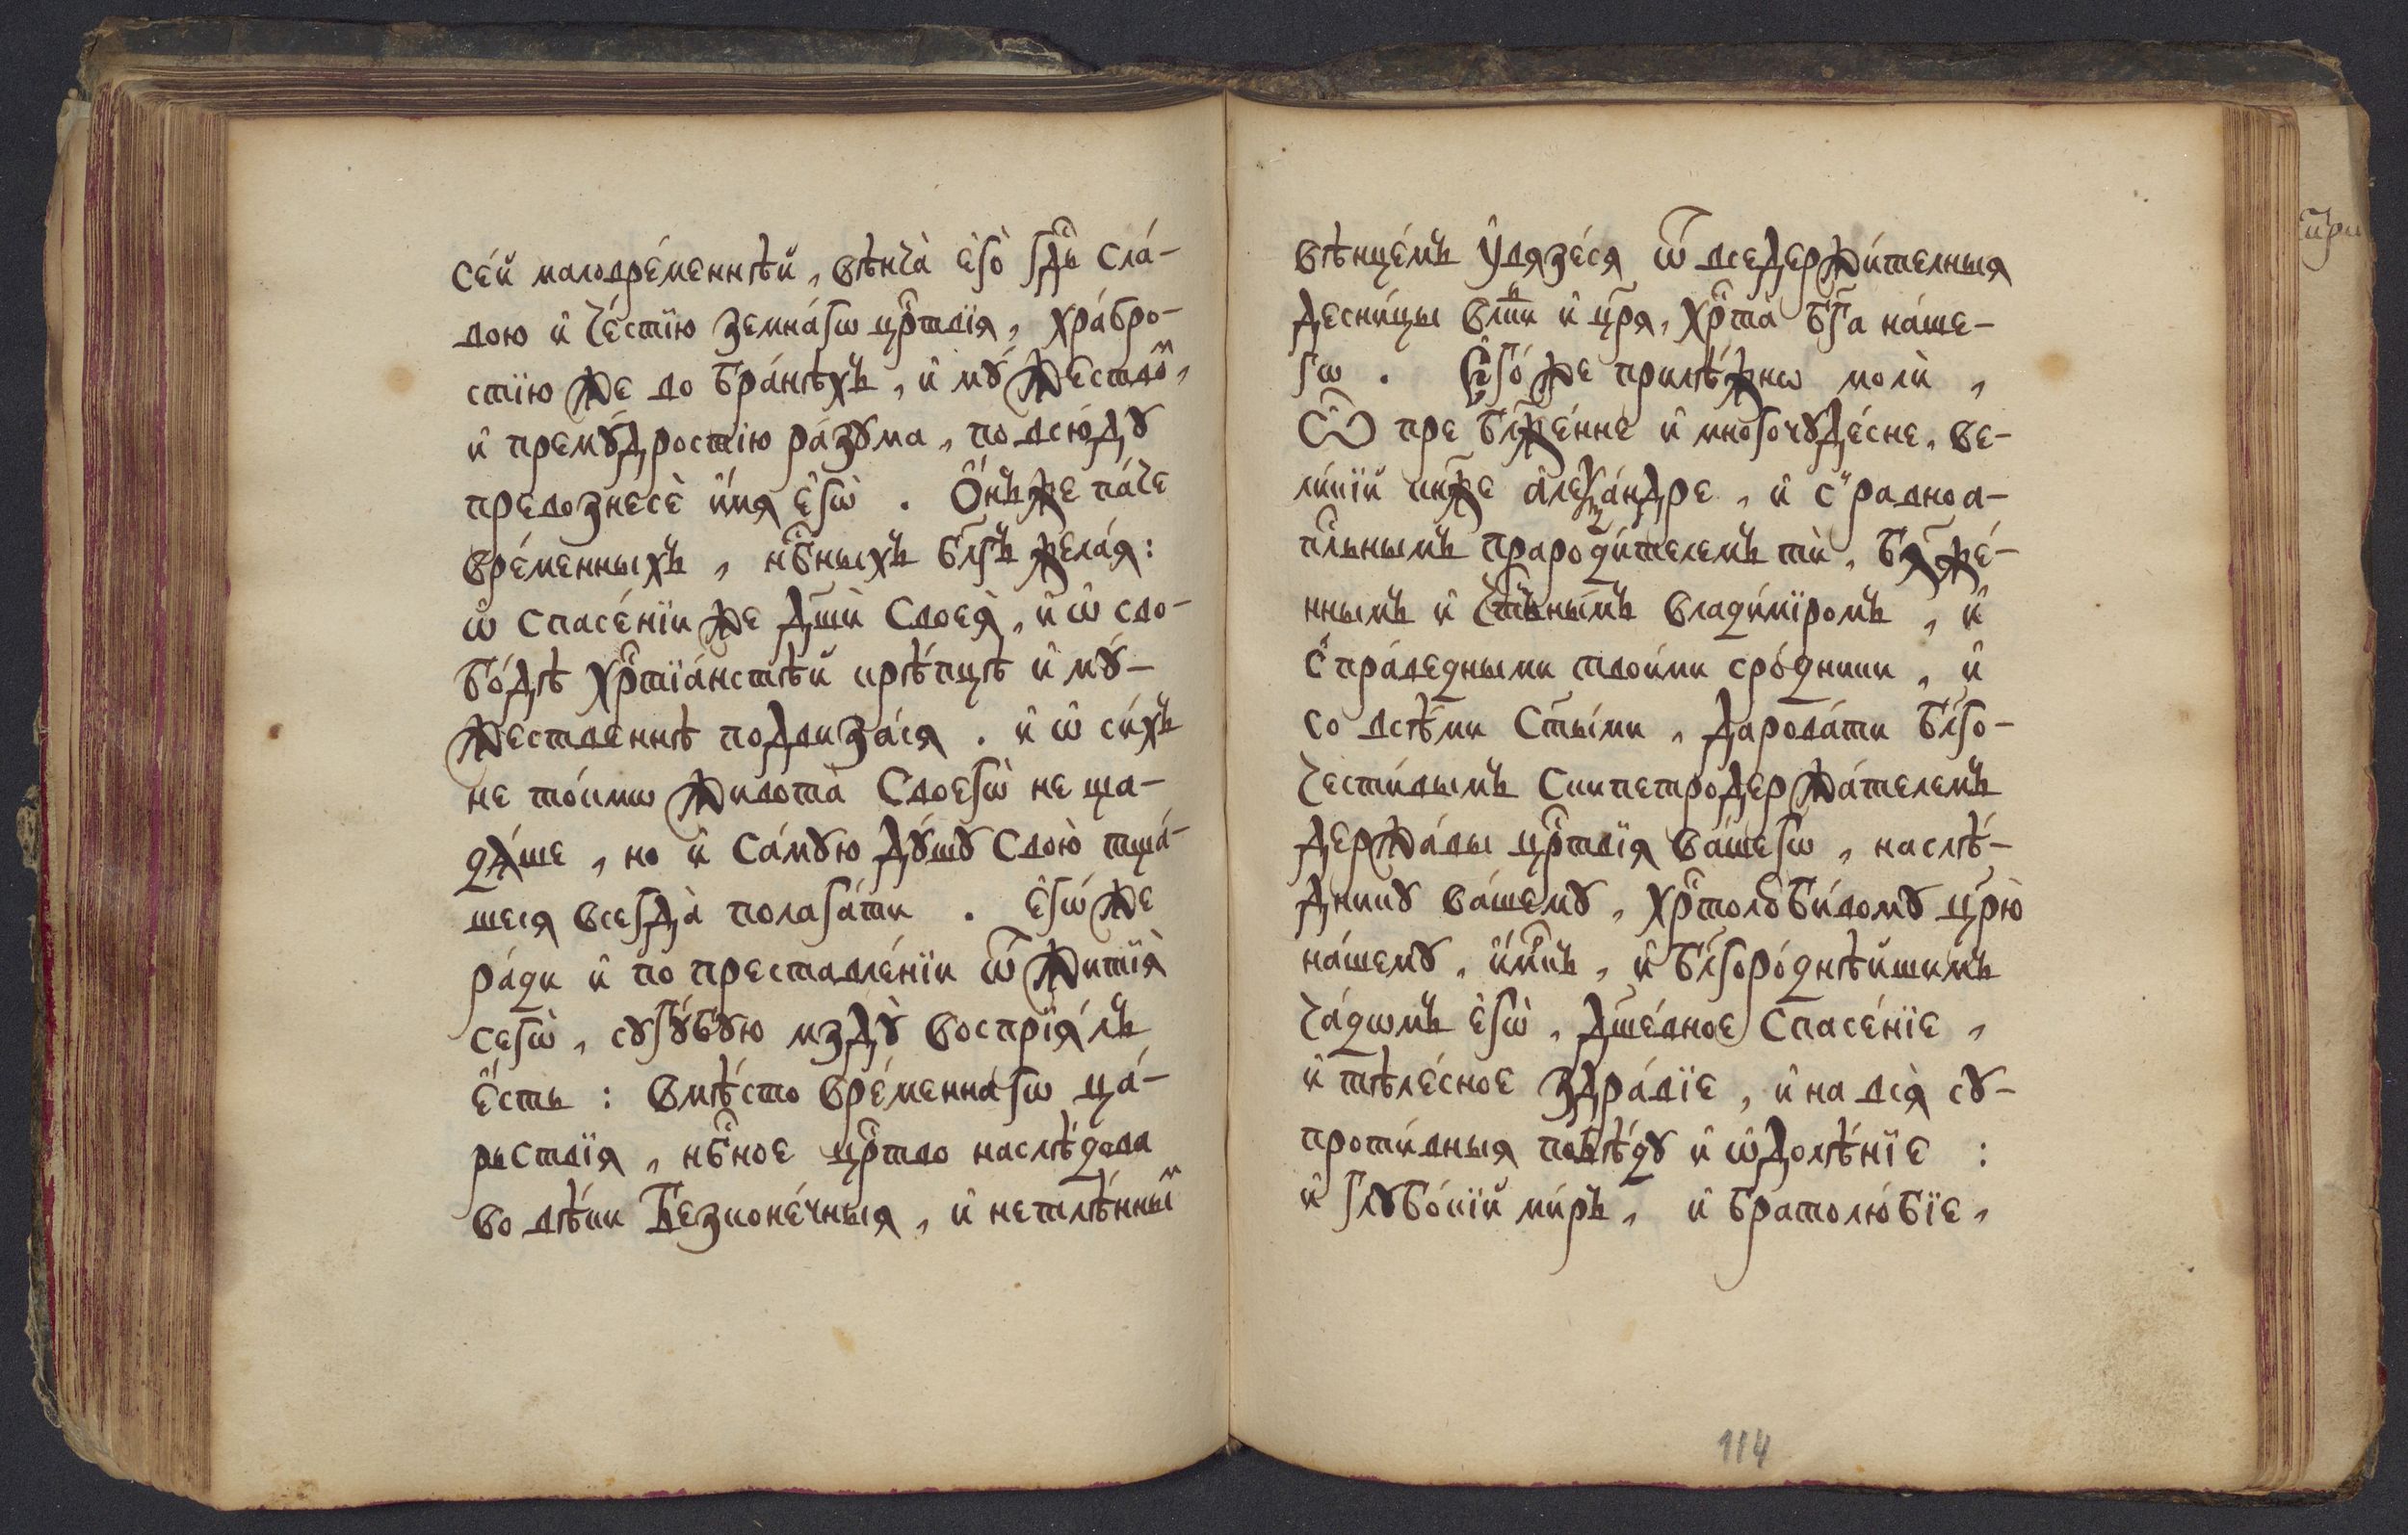 се́й маловре́меннѣй, вѣнча̀ є҆го̀ гд҇ь сла́-
вою и҆ че́стїю земна́гѡ цр҇твїя, хра́бро-
стїю же во бра́нѣхъ, и҆ мꙋ́жество́м,
и҆ премꙋ́дростїю ра́зꙋма, по всю́дꙋ
превознесѐ и҆́мя є҆гѡ̀. Ѻ҆́нъ же па́че
вре́менныхъ, нб҇ныхъ бл҃гъ жела́я:
ѡ҆ спасе́нїи же дш҃ѝ своея̀, и҆ ѡ҆ сво-
бо́дѣ хр҇тїа́нстѣй крѣ́пцѣ и҆ мꙋ́-
жественнѣ подвиза́ся. и҆ ѡ҆ си́хъ
не то́кмѡ живота̀ своегѡ̀ не ща-
дѧ́ше, но и҆ са́мꙋю дꙋ́шꙋ свою̀ тща́-
шеся всегда̀ полага́ти. Є҆гѡ́ же
ра́ди и҆ по преставле́нїи ѿ житїя̀
сегѡ̀, сꙋгꙋ́бꙋю мздꙋ̀ воспрїя́лъ
є҆́сть: вмѣ́сто вре́меннагѡ ца́-
рьствїя, нб҇ное цр҇тво наслѣ́дова
во вѣ́ки безконе́чныя, и҆ нетлѣ́нным
вѣнце́мъ ᲂу҆вязе́ся ѿ вседержи́телныя
десни́цы влⷣки и҆ цр҃я, хр҇та̀ бг҃а на́ше-
гѡ. Є҆го́ же прилѣ́жнѡ молѝ,
Ѽ пре бл҃же́нне и҆ многочꙋде́сне, ве-
ли́кїй кн҃же а҆леѯа́ндре, и҆ с̾ равноа-
п҇льнымъ прароди́телемъ тѝ, бл҃же́-
ннымъ и҆ чⷭ҇тнымъ влади́мїромъ, и҆
с̾ пра́ведными твои́ми сро́дники, и҆
со всѣ́ми ст҃ы́ми, дарова́ти бл҃го-
чести́вымъ скипетродержа́телемъ
держа́вы цр҇твїя ва́шегѡ, наслѣ́-
дникꙋ ва́шемꙋ, хр҇толюби́вомꙋ цр҃ю̀
на́шемꙋ, и҆́мкъ, и҆ бл҃горо́днѣйшимъ
ча́дѡмъ є҆гѡ̀, дш҃е́вное спасе́нїе,
и҆ тѣле́сное здра́вїе, и҆ на вся̀ сꙋ-
проти́вныя побѣ́дꙋ и҆ ѡ҆долѣ́нїе:
и҆ глꙋбо́кїй ми́ръ, и҆ братолю́бїе,
114